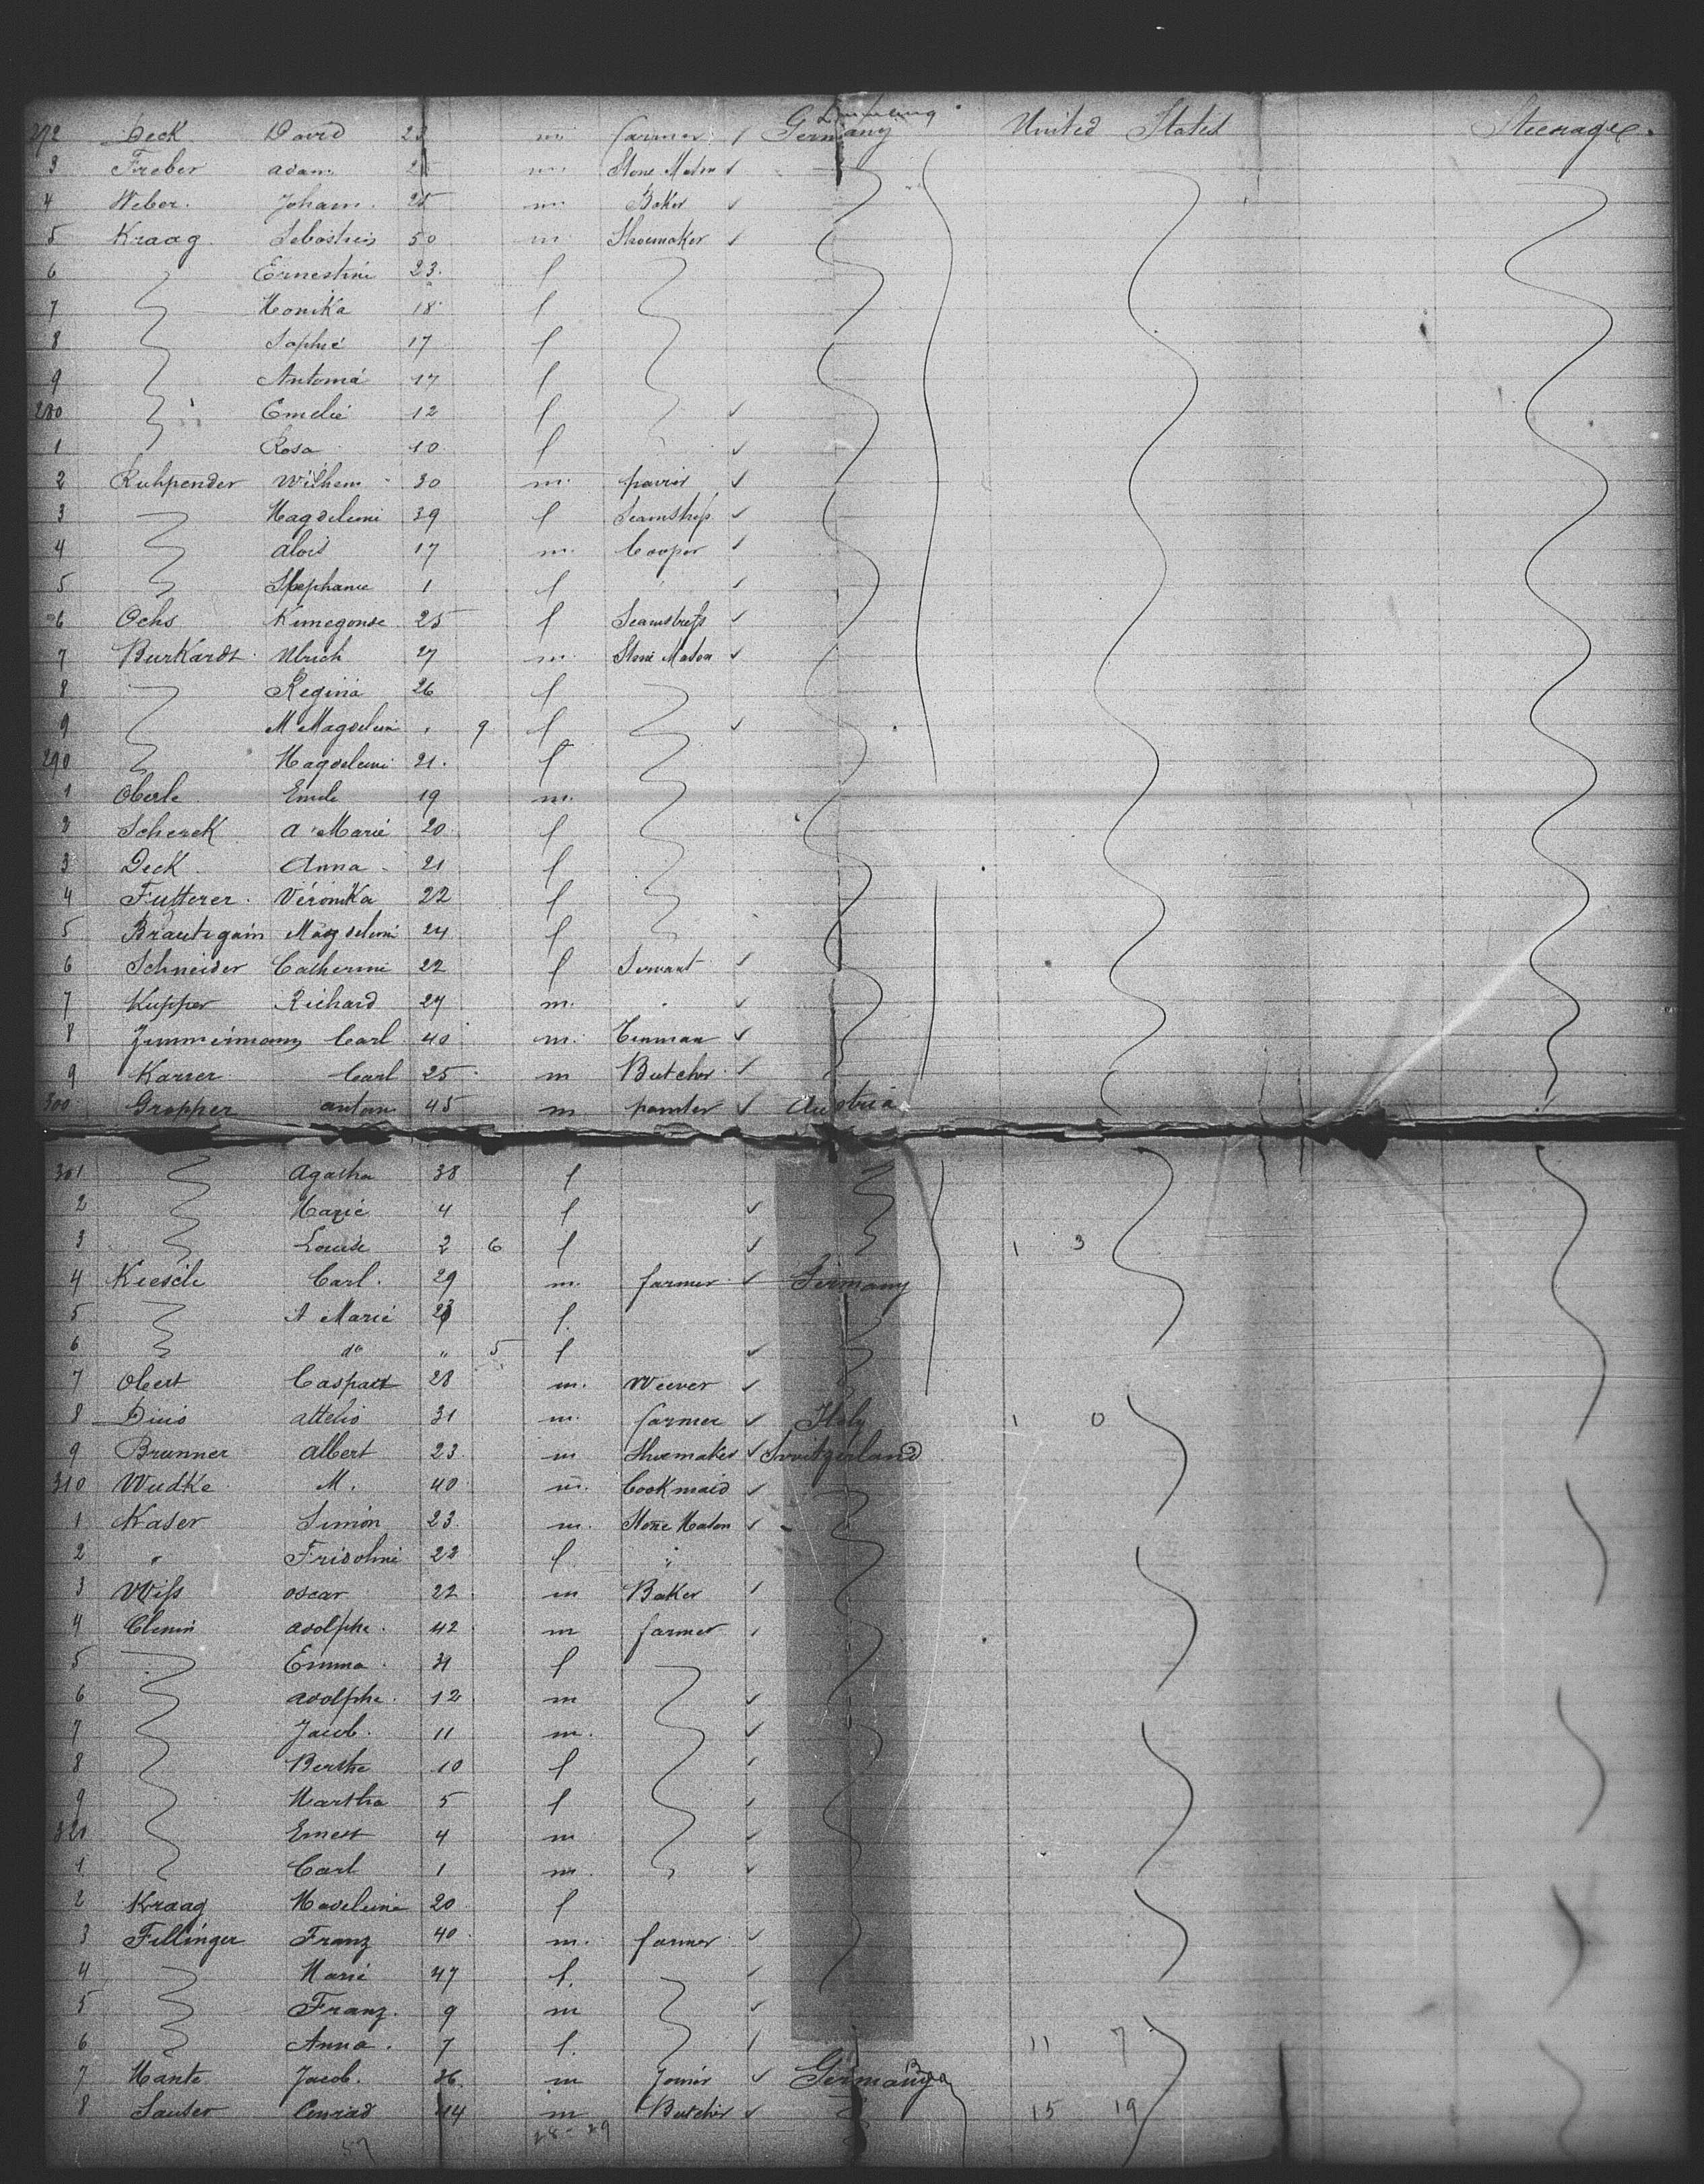 272 Deck David 23 m farmer Germany United States Steerage.
3 Freber adam 25 m Stone Mason
4 Weber. Johann. 25 m Baker
5 Kraag 50 m Shoemaker
6 Ernestine 23. f
7 Monika 18 f
8 Sophie 17 f
9 Antonia 17 f
280 Emelie 12 f
1 Rosa 10 f
2 Ruhpender Wilhem 30 m
3 Magdeleine 39 f Seamstress
4 alois 17 m. Cooper
5 Stephanie 1 f
6 Ochs Kunegonde 25 f Seamstress
7 Burkardt Ulrich 27 m Stone Mason
8 Regina 26 f
9 M Magdeleine . 9 f
290 Magdeleine 21. f
1 Oberle Emile 19 m.
2 Scherek A Marie 20 f
3 Deck Anna 21 f
4 Futterer. Véronika 22 f
5 Brautigain Magdeleine 24 f
6 Schneider Catherine 22 f Servant
7 Kupper Richard 27 m. .
8 Zimmermann Carl 40 m. Tinman
9 Karrer Carl 25 m Butcher
300 Gropper anton 45 m painter Austria
301 Agatha 38 f
2 Marie 4 f
3 Louise 2 6 f 1 3
4 Kiesele Carl. 29 m. farmer Germany
5 A Marie f.
6 do " 5 f
7 Obert Caspart 28 m. Weever
8 attelio 31 m. farmer Italy 1 0
9 Brunner Albert 23 m Shoemaker Switzerland
310 Wudke M. 40 m. Cookmaid
1 Kaser Simon 23. m. Stone Mason
2 " Fridoline 22 f. "
3 Wiss oscar 22 m Baker
4 Clenin adolphe. 42 m farmer
5 Emma 31 f
6 adolphe. 12 m
7 Jacob. 11 m.
8 Berthe 10 f
9 Martha 5 f
320 Ernest 4 m
1 Carl 1 m
2 Kraag Madeleine 20 f
3 Fellinger Franz 40 m. farmer
4 Marie 47 f.
5 Franz. 9 m
6 Anna. 7 f. 11 7
7 Mante Jacob. 36. m Joiner Germany
8 Sauter Conrad 44 m Butcher 15 19
57 28-29